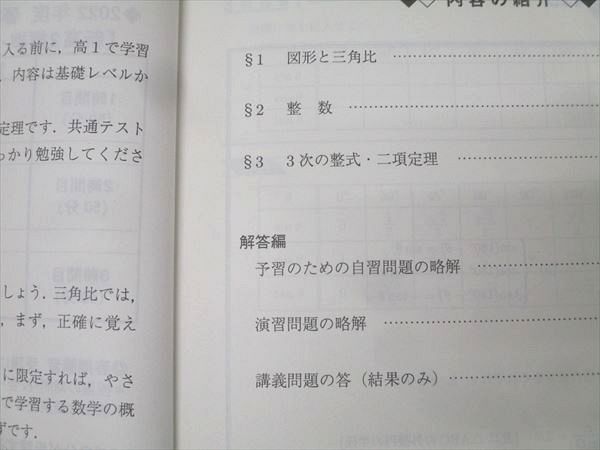 入る前に,高1で学習
,内容は基礎レベルか
定理です.共通テスト
っかり勉強してくださ
しょう.三角比では,
,まず,正確に覚え
に限定すれば,やさ
で学習する数学の概
ずです.
内容の紹介
§1 図形と三角比
§2 整 数
§3 3次の整式・二項定理
解答編
予習のための自習問題の略解
演習問題の略解
講義問題の答(結果のみ)